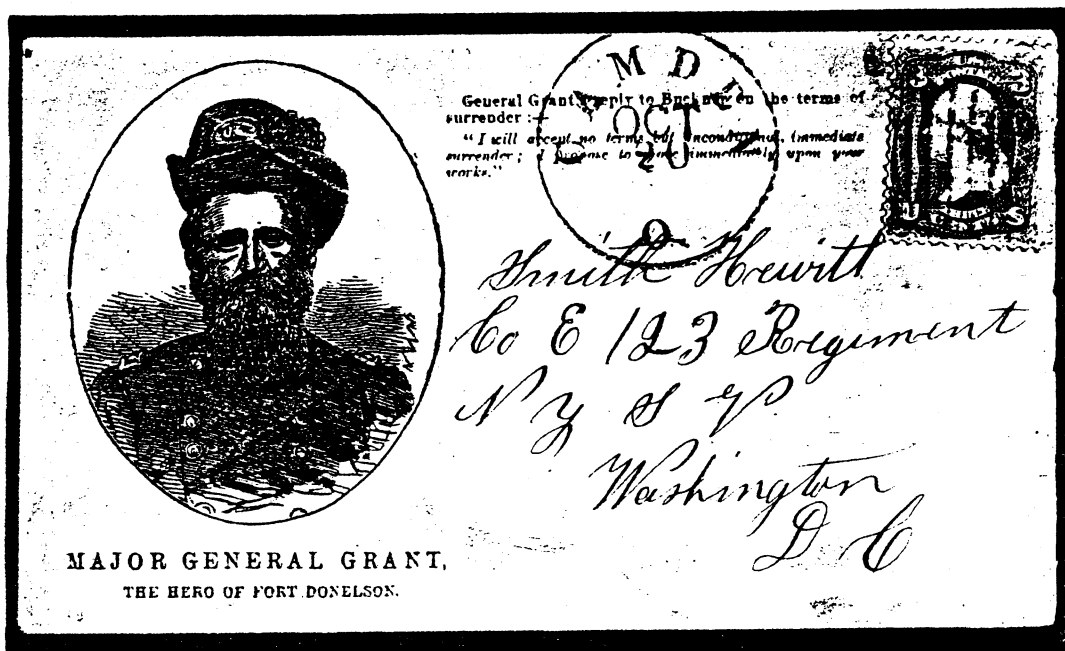 M D
OCT
20
9
General Grant's reply to Buckner on the terms of
surrender :—
"I will accept no terms but unconditional, immediate
surrender; I propose to move immediately upon your
works."
U S
Smith Hewitt
Co E 123 Regiment
N Y S V
Washington
D C
MAJOR GENERAL GRANT,
THE HERO OF FORT DONELSON.